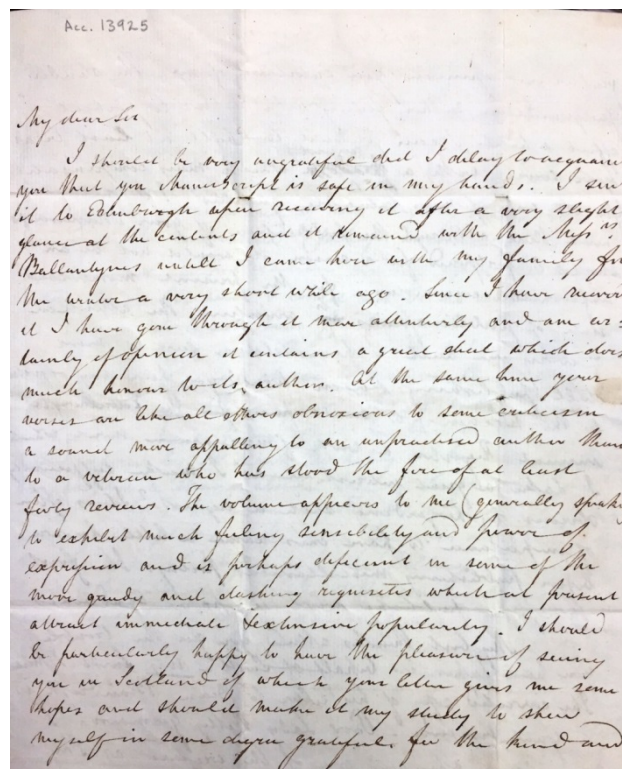 Acc. 13925
My dear Sir
I should be very ungrateful did I delay to acquain
you that you Manuscript is safe in my hands. I sen
it to Edinburgh upon receiving it after a very slight
glance at the contents and it remained with the Mess.rs
Ballantynes untill I came here with my family for
the winter a very short while ago. Since I have receiv
it I have gone through it more attentively and am cer:
tainly of opinion it contains a great deal which does
much honour to its author. At the same time your
verses are like all others obnoxious to some criticism
a sound more appalling to an unpractised author than
to a veteran who has stood the fire of at least
forty reviews. The volume appears to me (generally speaki
to exhibit much feeling sensibility and power of
expression and is perhaps deficient in some of the
more gaudy and dashing requisites which at present
attract immediate & extensive popularity. I should
be particularly happy to have the pleasure of seeing
you in Scotland of which your letter gives me some
hopes and should make it my study to shew
myself in some degree grateful for the kind and